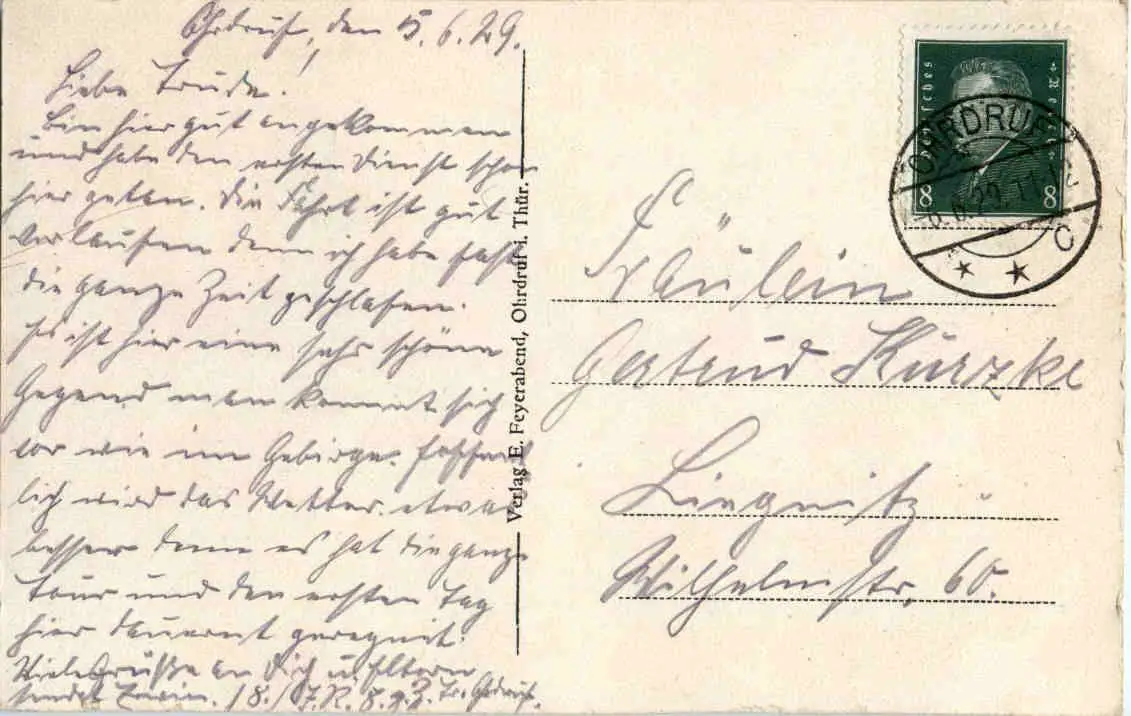 Ohrdruf, den 5.6.29.
Liebe Trude!
Bin hier gut angekommen
und habe den ersten Dienst schon
hier getan. Die Fahrt ist gut
verlaufen denn ich habe fast
die ganze Zeit geschlafen.
Es ist hier eine sehr schöne
Gegend man kommt sich
vor wie im Gebirge. Hoffent
lich wird das Wetter etwas
besser denn es hat die ganze
Tour und den ersten Tag
hier dauernt geregnit.
Viele Grüße an Dich u. Eltern
sendet Erwin. 18./7.R. z.Z. Tr. Ohrdruf.
Verlag E. Feyerabend, Ohrdruf i. Thür.
Deutsches Reich
8 8
OHRDRUF
6.6.29. 11-12
C
Fräulein
Gertrud Kurzke
Liegnitz
Wilhelmstr. 60.